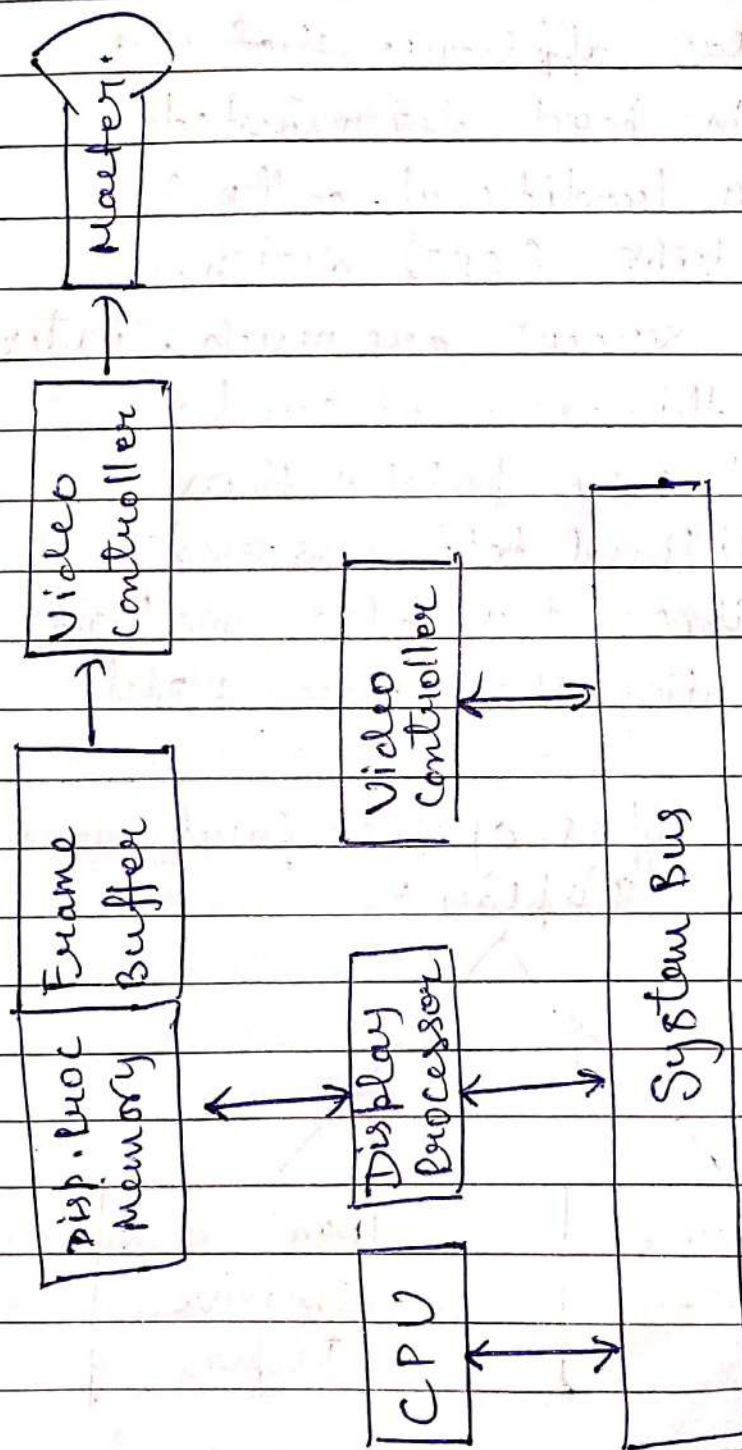 Disp. Proc
Memory
Frame
Buffer
Video
Controller
CPU
Display
Processor
Video
Controller
System Bus